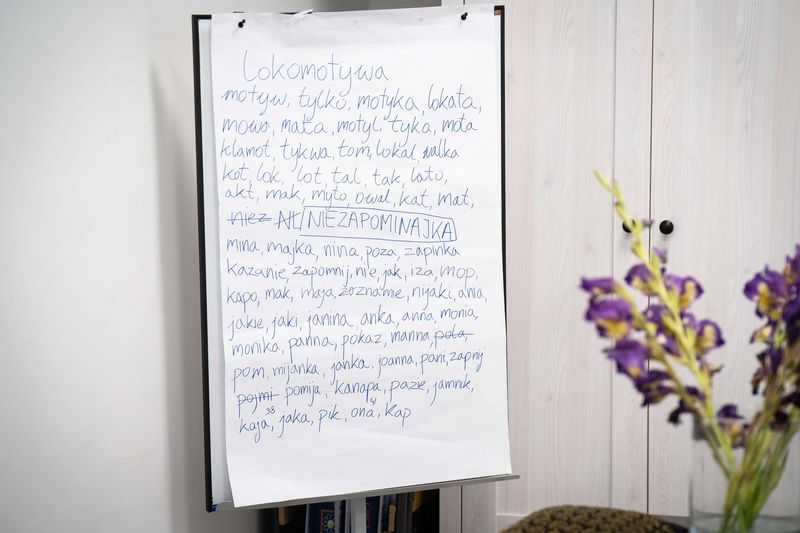 Lokomotywa
motyw, tylko, motyka, lokata,
mowo, mata, motyl, tyka, mota
klamot, tykwa, tom, lokal, walka
kot, lok, lot, tal, tak, lato,
akt, mak, myto, owal, kat, mat,
niez NI NIEZAPOMINAJKA
mina, majka, nina, poza, zapinka
kazanie, zapomnij, nie, jak, iza, mop,
kapo, mak, maja, zeznanie, nijaki, ania,
jakie, jaki, janina, anka, anna, monia,
monika, panna, pokaz, manna, pola,
pom, mijanka, janka, joanna, pani, zapnij
pojmi pomija, kanapa, pazie, jamnik,
kaja, 38 jaka, pik, ona, 41 kap